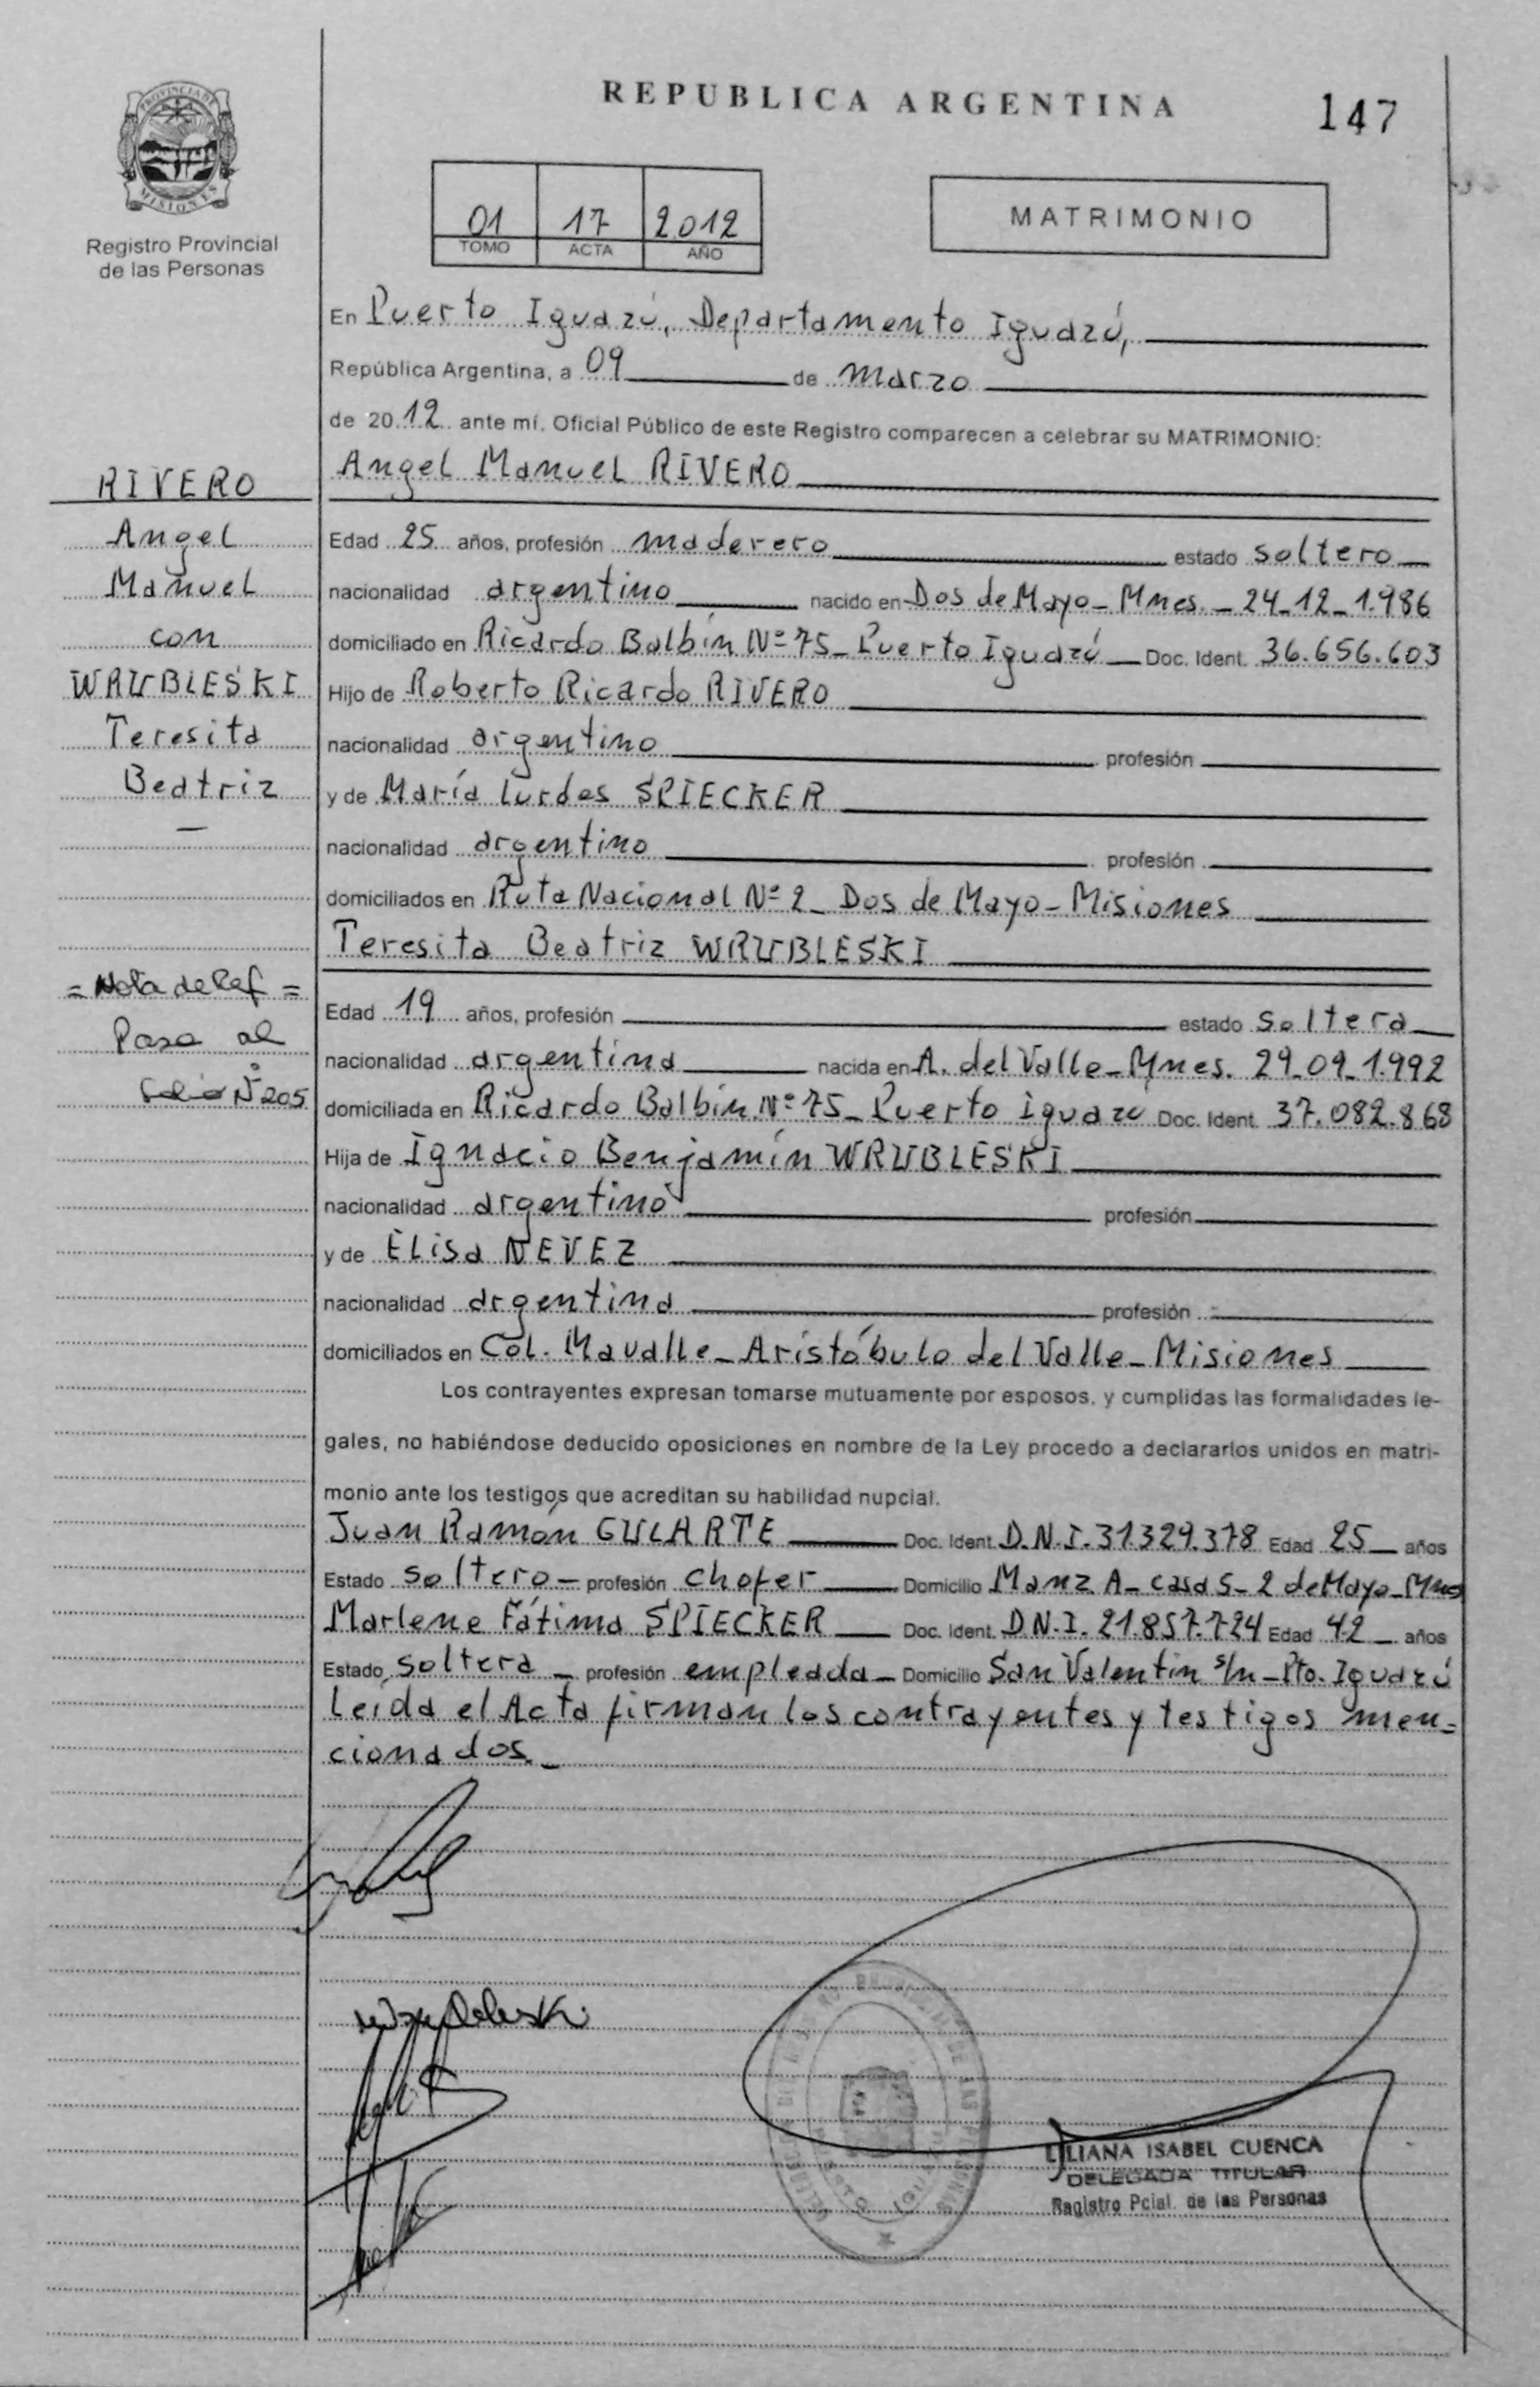 REPUBLICA ARGENTINA
147
PROVINCIA DE
MISIONES
Registro Provincial
de las Personas
01 17 2.012
TOMO ACTA AÑO
MATRIMONIO
En Puerto Iguazú, Departamento Iguazú,
República Argentina, a 09 de marzo
de 2012 ante mí, Oficial Público de este Registro comparecen a celebrar su MATRIMONIO:
Angel Manuel RIVERO
RIVERO
Angel
Manuel
con
WRUBLESKI
Teresita
Beatriz
—
Edad 25 años, profesión maderero estado soltero
nacionalidad argentino nacido en Dos de Mayo - Mnes. - 24-12-1.986
domiciliado en Ricardo Balbín Nº 75 - Puerto Iguazú Doc. Ident. 36.656.603
Hijo de Roberto Ricardo RIVERO
nacionalidad argentino profesión
y de María Lurdes SPIECKER
nacionalidad argentino profesión
domiciliados en Ruta Nacional Nº 2 - Dos de Mayo - Misiones
Teresita Beatriz WRUBLESKI
= Nota de Ref =
Pasa al
Folio Nº 205
Edad 19 años, profesión estado soltera
nacionalidad argentina nacida en A. del Valle - Mnes. 29-09-1.992
domiciliada en Ricardo Balbín Nº 75 - Puerto Iguazú Doc. Ident. 37.082.868
Hija de Ignacio Benjamín WRUBLESKI
nacionalidad argentino profesión
y de Elisa NEVEZ
nacionalidad argentina profesión
domiciliados en Col. Mavalle - Aristóbulo del Valle - Misiones
Los contrayentes expresan tomarse mutuamente por esposos, y cumplidas las formalidades le-
gales, no habiéndose deducido oposiciones en nombre de la Ley procedo a declararlos unidos en matri-
monio ante los testigos que acreditan su habilidad nupcial.
Juan Ramón GULARTE Doc. Ident. D.N.I. 31.329.378 Edad 25 años
Estado soltero - profesión chofer Domicilio Manz A - casa 5 - 2 de Mayo - Mnes
Marlene Fátima SPIECKER Doc. Ident. D.N.I. 21.857.724 Edad 42 años
Estado soltera - profesión empleada - Domicilio San Valentín s/n - Pto. Iguazú
Leída el Acta firman los contrayentes y testigos men=
cionados.
LILIANA ISABEL CUENCA
DELEGADA TITULAR
Registro Pcial. de las Personas